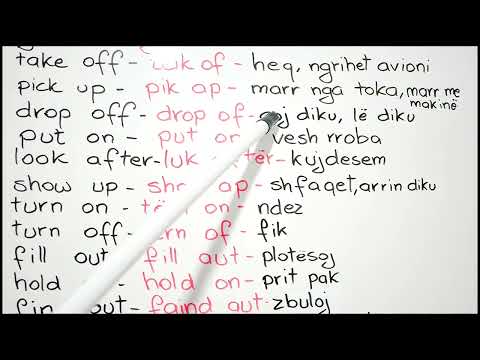 take off - of - heq, ngrihet avioni
pick up - pik ap - marr nga toka, marr me makinë
drop off - drop of - diku, lë diku
put on - put on - vesh rroba
look after - luk - kujdesem
show up - ap - shfaqet, arrin diku
turn on - on - ndez
turn off - of - fik
fill out - fill aut - plotësoj
hold on - hold on - prit pak
faind aut - zbuloj